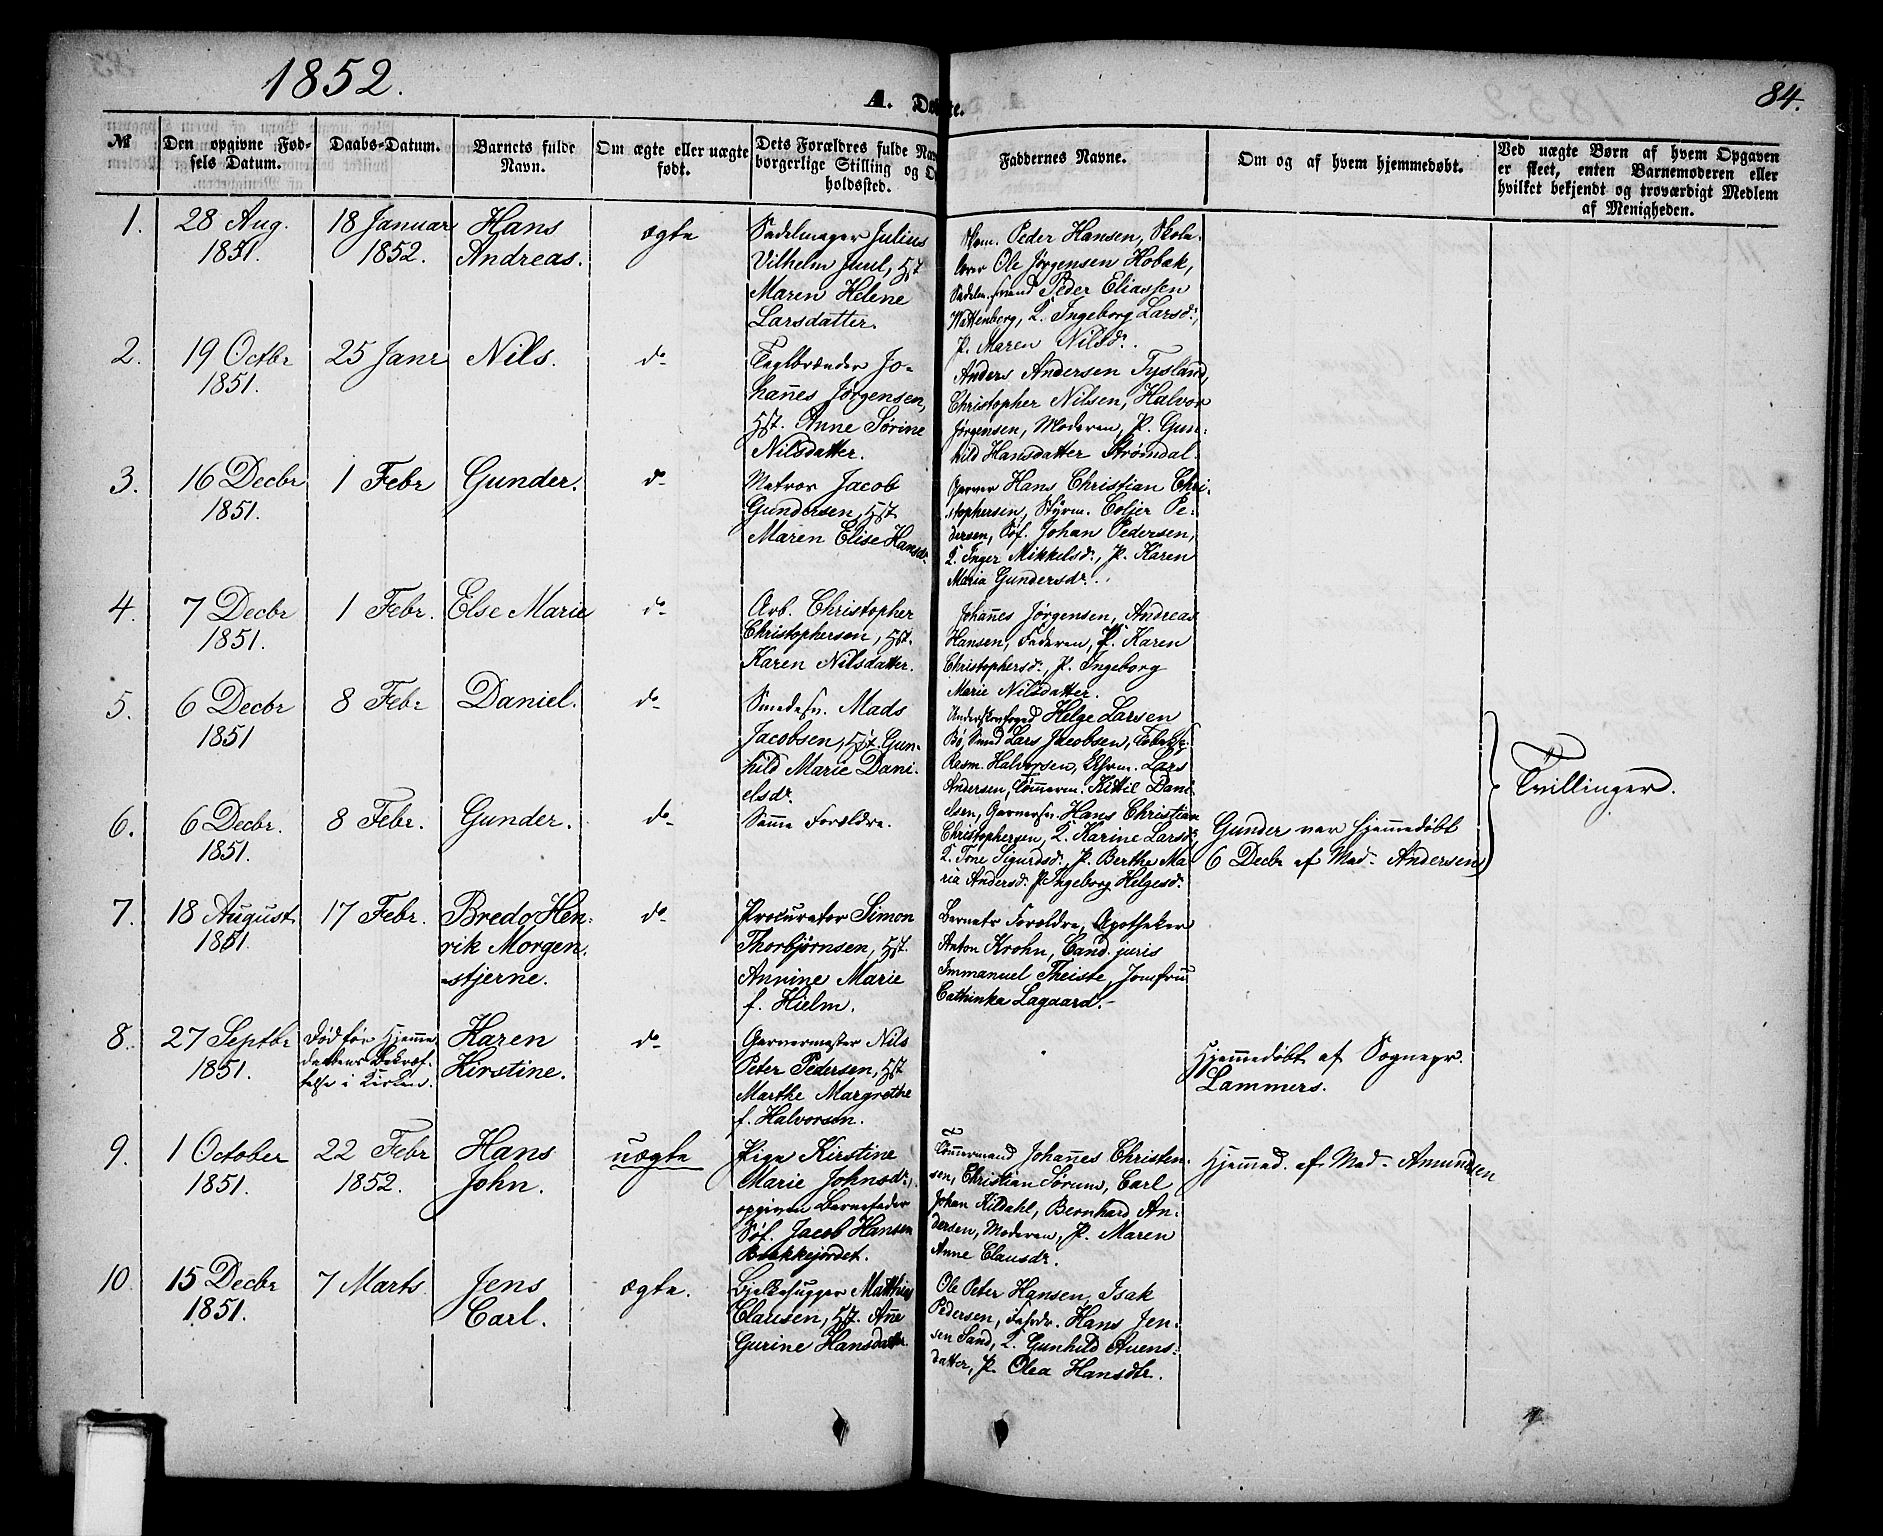 1852.
A. Døbte.
84.
№
Den opgivne Fød-
sels Datum.
Daabs-Datum.
Barnets fulde
Navn.
Om ægte eller uægte
født.
Dets Forældres fulde Nav
borgerlige Stilling og O
holdssted.
Faddernes Navne.
Om og af hvem hjemmedøbt.
Ved uægte Børn af hvem Opgaven
er skeet, enten Barnemoderen eller
hvilket bekjendt og troværdigt Medlem
af Menigheden.
1.
28 Aug.
1851.
18 Januar
1852.
Hans
Andreas.
ægte
Sadelmager Julius
Vilhelm Juul, Hst.
Maren Helene
Larsdatter.
Peder Hansen, Skole-
lærer Ole Jørgensen Hobæk,
Peder Eliassen
Wattenberg, K. Ingeborg Larsd.,
P. Maren Nilsd.
2.
19 Octbr
1851.
25 Janr
Nils.
do
Teglbrænder Jo-
hannes Jørgensen,
Hst. Anne Sørine
Nilsdatter.
Anders Andersen Fysland,
Christopher Nilsen, Halvor
Jørgensen, Moderen, P. Gun-
hild Hansdatter Strømdal.
3.
16 Decbr
1851.
1 Febr
Gunder.
do
Matros Jacob
Gundersen, Hst.
Maren Elise Hansd.
Garver Hans Christian Chri-
stophersen, Styrm. Coljer Pe-
dersen, Søf. Johan Pedersen,
K. Inger Mikkelsd., P. Karen
Maria Gundersdr.
4.
7 Decbr
1851.
1 Febr.
Else Marie
do
Arb. Christopher
Christophersen, Hst.
Karen Nilsdatter.
Johannes Jørgensen, Andreas
Hansen, Faderen, P. Karen
Christophersd., P. Ingeborg
Marie Nilsdatter.
5.
6 Decbr
1851
8 Febr
Daniel.
do
Smedesv. Mads
Jacobsen, Hst. Gun-
hild Marie Dani-
elsdr.
Underskovfoged Helge Larsen
Bø, Smed Lars Jacobsen,
Rasm. Halvorsen, Lars
Andersen, Tømmerm. Kittil Dani-
elsen, Garversv. Hans Christian
Christophersen, K. Karine Larsd.,
K. Tone Sigurdsd., P. Berthe Ma-
ria Andersd. P. Ingeborg Helgesd.
Tvillinger.
6.
6 Decbr.
1851.
8 Febr.
Gunder.
do
Samme Forældre.
Gunder var hjemmedøbt
6 Decbr af Mad. Andersen
7.
18 August.
1851.
17 Febr.
Bredo Hen-
rik Morgen-
stjerne.
do
Procurator Simon
Thorbjørnsen, Hst.
Annine Marie
f. Hielm.
Barnets Forældre, Apotheker
Anton Krohn, Cand. juris
Immanuel Theiste, Jomfru
Cathinka Lagaard.
8.
27 Septbr
1851.
Død før Hjemme
daabens Bekræf-
telse i Kirken.
Karen
Kirstine.
do
Garvermester Nils
Peter Pedersen, Hst.
Marthe Margrethe
f. Halvorsen.
Hjemmedøbt af Sognepr.
Lammers.
9.
1 October
1851.
22 Febr
1852.
Hans
John.
uægte
Pige Kirstine
Marie Johnsdr.,
opgiven Barnefader
Søf. Jacob Hansen
Bakkejordet.
Tømmermand Johannes Christen-
sen, Christian Sørum, Carl
Johan Kildahl, Bernhard An-
dersen, Moderen, P. Maren
Anne Clausdr.
Hjemmed. af Mad. Amundsen
10.
15 Decbr
1851.
7 Marts.
Jens
Carl.
ægte.
Bjelkehugger Matthias
Clausen, Hst. Anne
Gurine Hansdatter.
Ole Peter Hansen, Isak
Pedersen, Hans Jen-
sen Sand, K. Gunhild Auens-
datter, P. Olea Hansdtr.